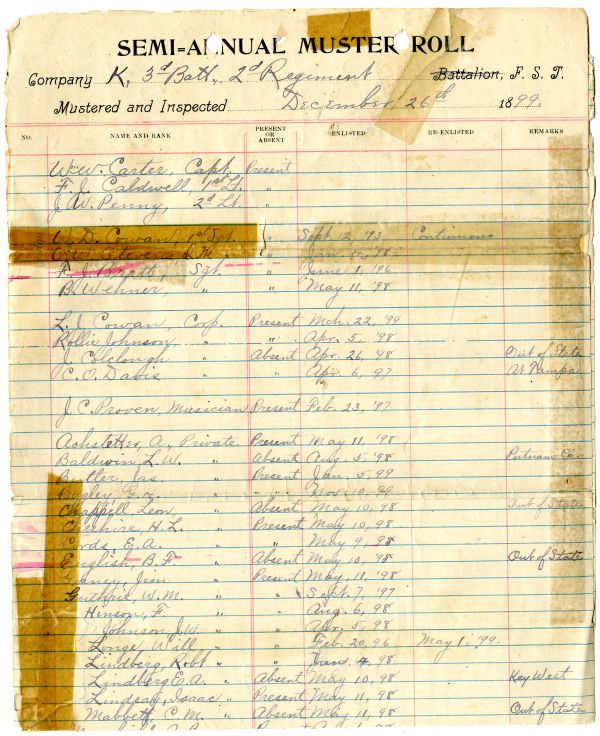 SEMI=ANNUAL MUSTER ROLL
Company K, 3d Batt., 2d Regiment Battalion, F. S. T.
Mustered and Inspected December 26th 1899.
NO. NAME AND RANK PRESENT OR ABSENT ENLISTED RE-ENLISTED REMARKS
Wm W. Carter, Capt. Present
F. J. Caldwell, 1st Lt. "
J. W. Penny, 2d Lt. "
W. D. Cowan, 1st Sgt. " Sept. 12, '93 Continuous
" '98
F. J. Sgt. " June 1, '96
B. Wehner " " May 11, '98
L. J. Cowan, Corp. Present Mch. 22, '99
Rollie Johnson, " " Apr. 5, '98
J. Colclough " Absent Apr. 26, '98 Out of State
C. O. Davis " " Apr. 6, '97 At Tampa
J. C. Proven, Musician Present Feb. 23, '97
Achstetter, A., Private Present May 11, '98
Baldwin, L. W. " Absent Aug. 5 '98 Putnam Co.
Butler, Jas. " Present Jan. 5, 99
Bagley, " " Nov. 10, 99
Chappell, Leon, " Absent May 10, 98 Out of State
Cheshire, H. L. " Present May 10, 98
Cords, E. A. " " May 9, 98
English, B. F. " Absent May 10, '98 Out of State
Jim " Present May. 11, '98
Guthrie, W. M. " " Sept. 7, '97
Hinson, F. " " Aug. 6, 98
Johnson, J. W. " " Apr. 5, 98
Longe, Will " " Feb. 20, 96 May 1, '99.
Lindberg, Robt " " Jan. 4, 98
Lindberg E. A. " Absent May 10, 98 Key West
Lindsay, Isaac " Present May 11, 98
Mabbett, C. M. " Absent May 11, 98 Out of State